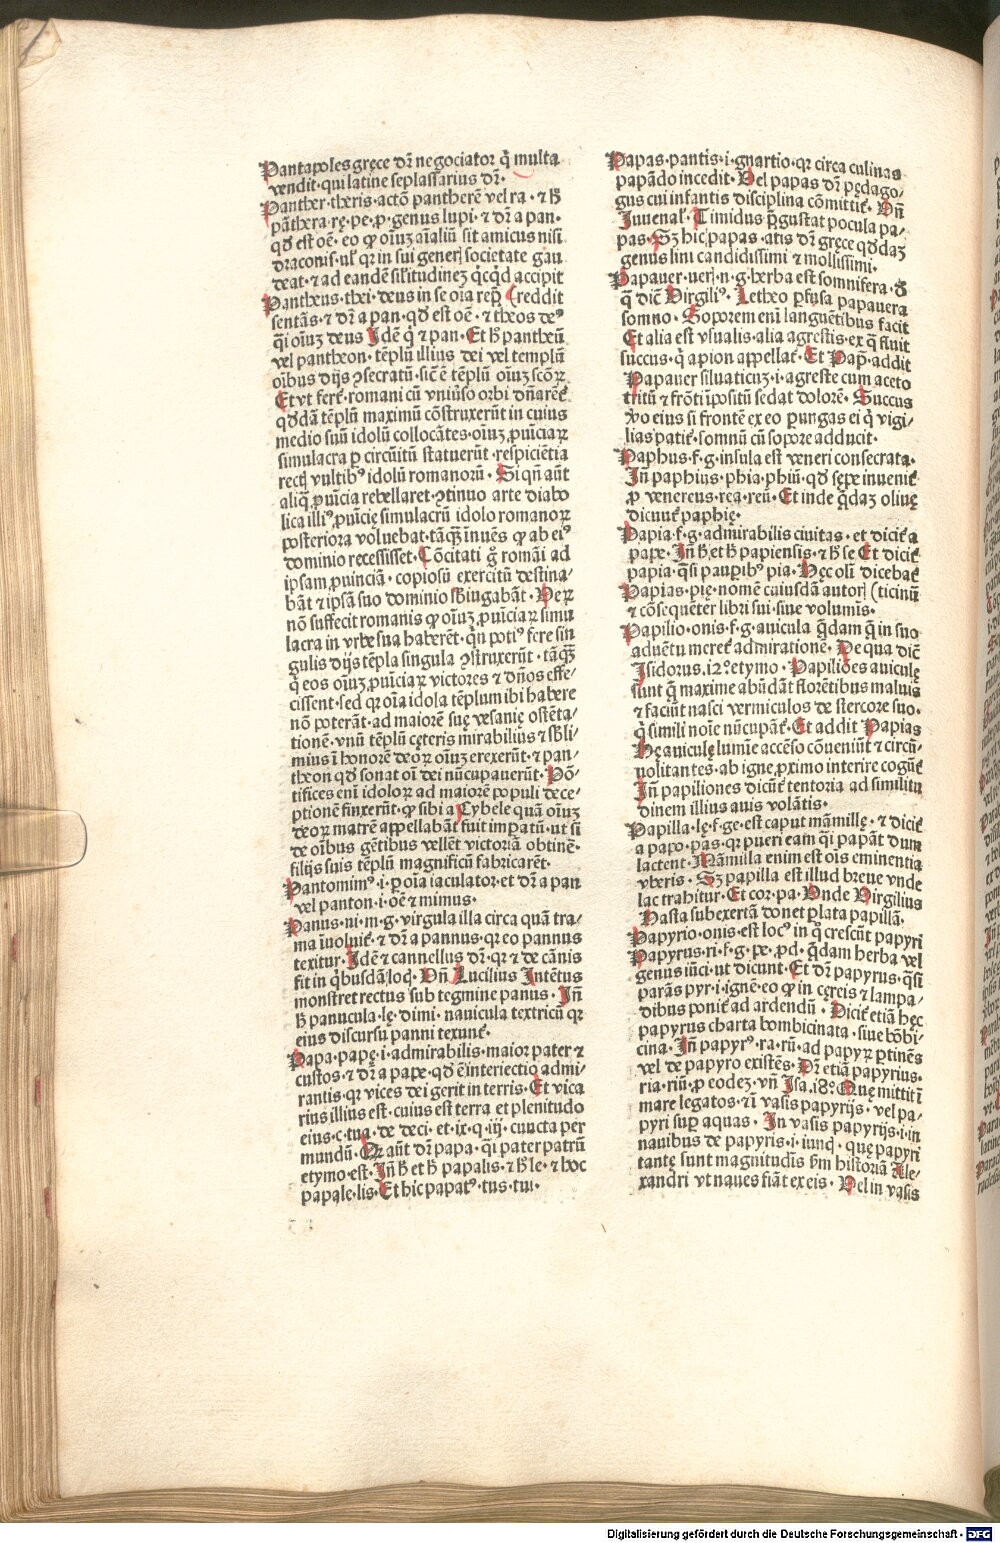 Pantapoles gręce dr̄ negociator q̇ multa
vendit·qui latine seplassiarius dr̄·
Panther·theris·actō pantherē vel ra·⁊ ħ
pāthera·rę·pe·ꝓ·genus lupi·⁊ dr̄ a pan·
qđ est oē·eo ꝙ oiuꝫ aīaliū sit amicus nisi
draconis·ul' qr in sui generꝭ societate gau
deat·⁊ ad eandē sil'itudineꝫ q̇cq̇d accipit
Pantheus·thei·deus in se oīa rep̄ (reddit
sentās·⁊ dr̄ a pan·qđ est oē·⁊ theos deꝰ
q̇i oiuꝫ deus Idē q̇ ⁊ pan·Et ħ pantheū
vel pantheon·tēplū illius dei vel templū
oībus dijs ꝯsecratū·sic̄ ē tēplū oiuꝫ scōꝝ
Et vt ferť·romani cū vniūso orbi dn̄areť
qđdā tēplū maximū cōstruxerūt in cuius
medio suū idolū collocātes·oiuꝫ ꝓuīciaꝝ
simulacra ꝑ circūitū statuerūt·respiciētia
rectꝭ vultibꝰ idolū romanorū·Si qn̄ aūt
aliq̄ ꝓuīcia rebellaret·ꝯtinuo arte diabo
lica illiꝰ ꝓuīcię simulacrū idolo romanoꝝ
posteriora voluebat·tāq̄ꝫ inuēs ꝙ ab eiꝰ
dominio recessisset·Cōcitati g̊ romāi ad
ipsam ꝓuinciā·copiosū exercitū destina/
bāt ⁊ ipsā suo dominio sb̄iugabāt·Veꝝ
nō suffecit romanis ꝙ oiuꝫ ꝓuīciaꝝ simu
lacra in vrbe sua haberēt·q̇n potiꝰ fere sin
gulis dijs tēpla singula ꝯstruxerūt·tāq̄ꝫ
q̇ eos oiuꝫ ꝓuīciaꝝ victores ⁊ dn̄os effe/
cissent·sed qr oīa idola tēplum ibi habere
nō poterāt·ad maiorē suę vesanię ostēta/
tionē·vnū tēplū cęteris mirabilius ⁊ sb̄li/
mius ī honorē deoꝝ oiuꝫ erexerūt·⁊ pan/
theon qđ sonat oī dei nūcupauerūt·Pō/
tifices enī idoloꝝ ad maiorē populi dece/
ptionē finxerūt·ꝙ sibi a Cybele quā oiuꝫ
deoꝝ matrē appellabāt fuit impatū·ut si
de oībus gētibus vellēt victoriā obtinē·
filijs suis tēplū magnificū fabricarēt·
Pantomimꝰ·i·ꝑ oīa iaculator·et dr̄ a pan
vel panton·i·oē ⁊ mimus·
Panus·ni·m·g·virgula illa circa quā tra/
ma īuoluiť·⁊ dr̄ a pannus·qr eo pannus
texitur·Idē ⁊ cannellus dr̄·qr ⁊ de cānis
fit in q̇busdā locꝭ·Vn̄ Lucilius Intētus
monstret rectus sub tegmine panus·Iñ
ħ panucula·lę·dimi·nauicula textricū qr
eius discursu panni texunť·
Papa·papę·i·admirabilis·maior pater ⁊
custos·⁊ dr̄ a pape·qđ ē interiectio admi/
rantis·qr vices dei gerit in terris·Et vica
rius illius est·cuius est terra et plenitudo
eius·c·tua·de deci·et·ix·q·iij·cuncta per
mundū·Qr aūt dr̄ papa·q̇i pater patrū
etymo·est·Iñ ħ et ħ papalis·⁊ ħ le·⁊ hoc
papale·lis·Et hic papatꝰ·tus·tui·
Papas·pantis·i·gnartio·qr circa culinas
papādo incedit·Vel papas dr̄ pędago/
gus cui infantis disciplina cōmittiť·Vn̄
Iuuenal'·Timidus p̄gustat pocula pa/
pas·Sꝫ hic papas·atis dr̄ gręce qđdaꝫ
genus lini candidissimi ⁊ mollissimi·
Papauer·uerꝭ·n·g·herba est somnifera·đ
q̄ dic̄ Virgiliꝰ·Letheo ꝑfusa papauera
somno·Soporem enī languētibus facit
Et alia est vsualis·alia agrestis·ex q̄ fluit
succus·q̇ apion appellať·Et Pap̄·addit
Papauer siluaticuꝫ·i·agreste cum aceto
tritū ⁊ frōti īpositū sedat dolorē·Succus
ỽo eius si frontē ex eo ꝑungas ei q̇ vigi/
lias patiť·somnū cū sopore adducit·
Paphus·f·g·insula est veneri consecrata·
Iñ paphius·phia·phiū·qđ sępe inueniť
ꝓ venereus·rea·reū·Et inde q̄daꝫ oliuę
dicuuť paphię·
Papia·f·g·admirabilis ciuitas·et diciť a
pape·Iñ ħ et ħ papiensis·⁊ ħ se Et diciť
papia·q̄si pauꝑibꝰ pia·Hęc olī dicebať
Papias·pię·nomē cuiusdā autorꝭ (ticinū
⁊ cōsequēter libri sui·siue volumīs·
Papilio·onis·f·g·auicula q̄dam q̄ in suo
aduētu mereť admirationē·De qua dic̄
Isidorus·12°etymo·Papiliōes auiculę
sunt q̄ maxime abūdāt florētibus maluis
⁊ faciūt nasci vermiculos de stercore suo·
q̇ simili noīe nūcupāť·Et addit Papias
Hę auiculę lumīe accēso cōueniūt ⁊ circū/
uolitantes·ab igne ꝓximo interire coguť
Iñ papiliones dicūť tentoria ad similitu
dinem illius auis volātis·
Papilla·lę·f·ge·est caput māmillę·⁊ diciť
a papo·pas·qr pueri eam q̇i papāt dum
lactent·Māmilla enim est oīs eminentia
vberis·Sꝫ papilla est illud breue vnde
lac trahitur·Et cor·pa·Vnde Virgilius
Hasta sub exertā donet ꝑlata papillā·
Papyrio·onis·est locꝰ in q̊ crescūt papyri
Papyrus·ri·f·g·pe·ꝓd·q̄dam herba vel
genus iūci·ut dicunt·Et dr̄ papyrus·q̄si
parās pyr·i·ignē·eo ꝙ in cęreis ⁊ lampa/
dibus poniť ad ardendū·Diciť etiā hęc
papyrus charta bombicinata·siue bōbi/
cina·Iñ papyrꝰ·ra·rū·ad papyꝝ ꝑtinēs
vel de papyro existēs·Dr̄ etiā papyrius·
ria·riū·ꝓ eodeꝫ·vn̄ Isa·18°Quę mittit ī
mare legatos·⁊ ī vasis papyrijs·vel pa/
pyri suꝑ aquas·In vasis papyrijs·i·in
nauibus de papyris·i·iuncꝭ·quę papyri
tantę sunt magnitudīs ẜm historiā Ale/
xandri vt naues fiāt ex eis·Vel in vasis
Digitalisierung gefördert durch die Deutsche Forschungsgemeinschaft - DFG